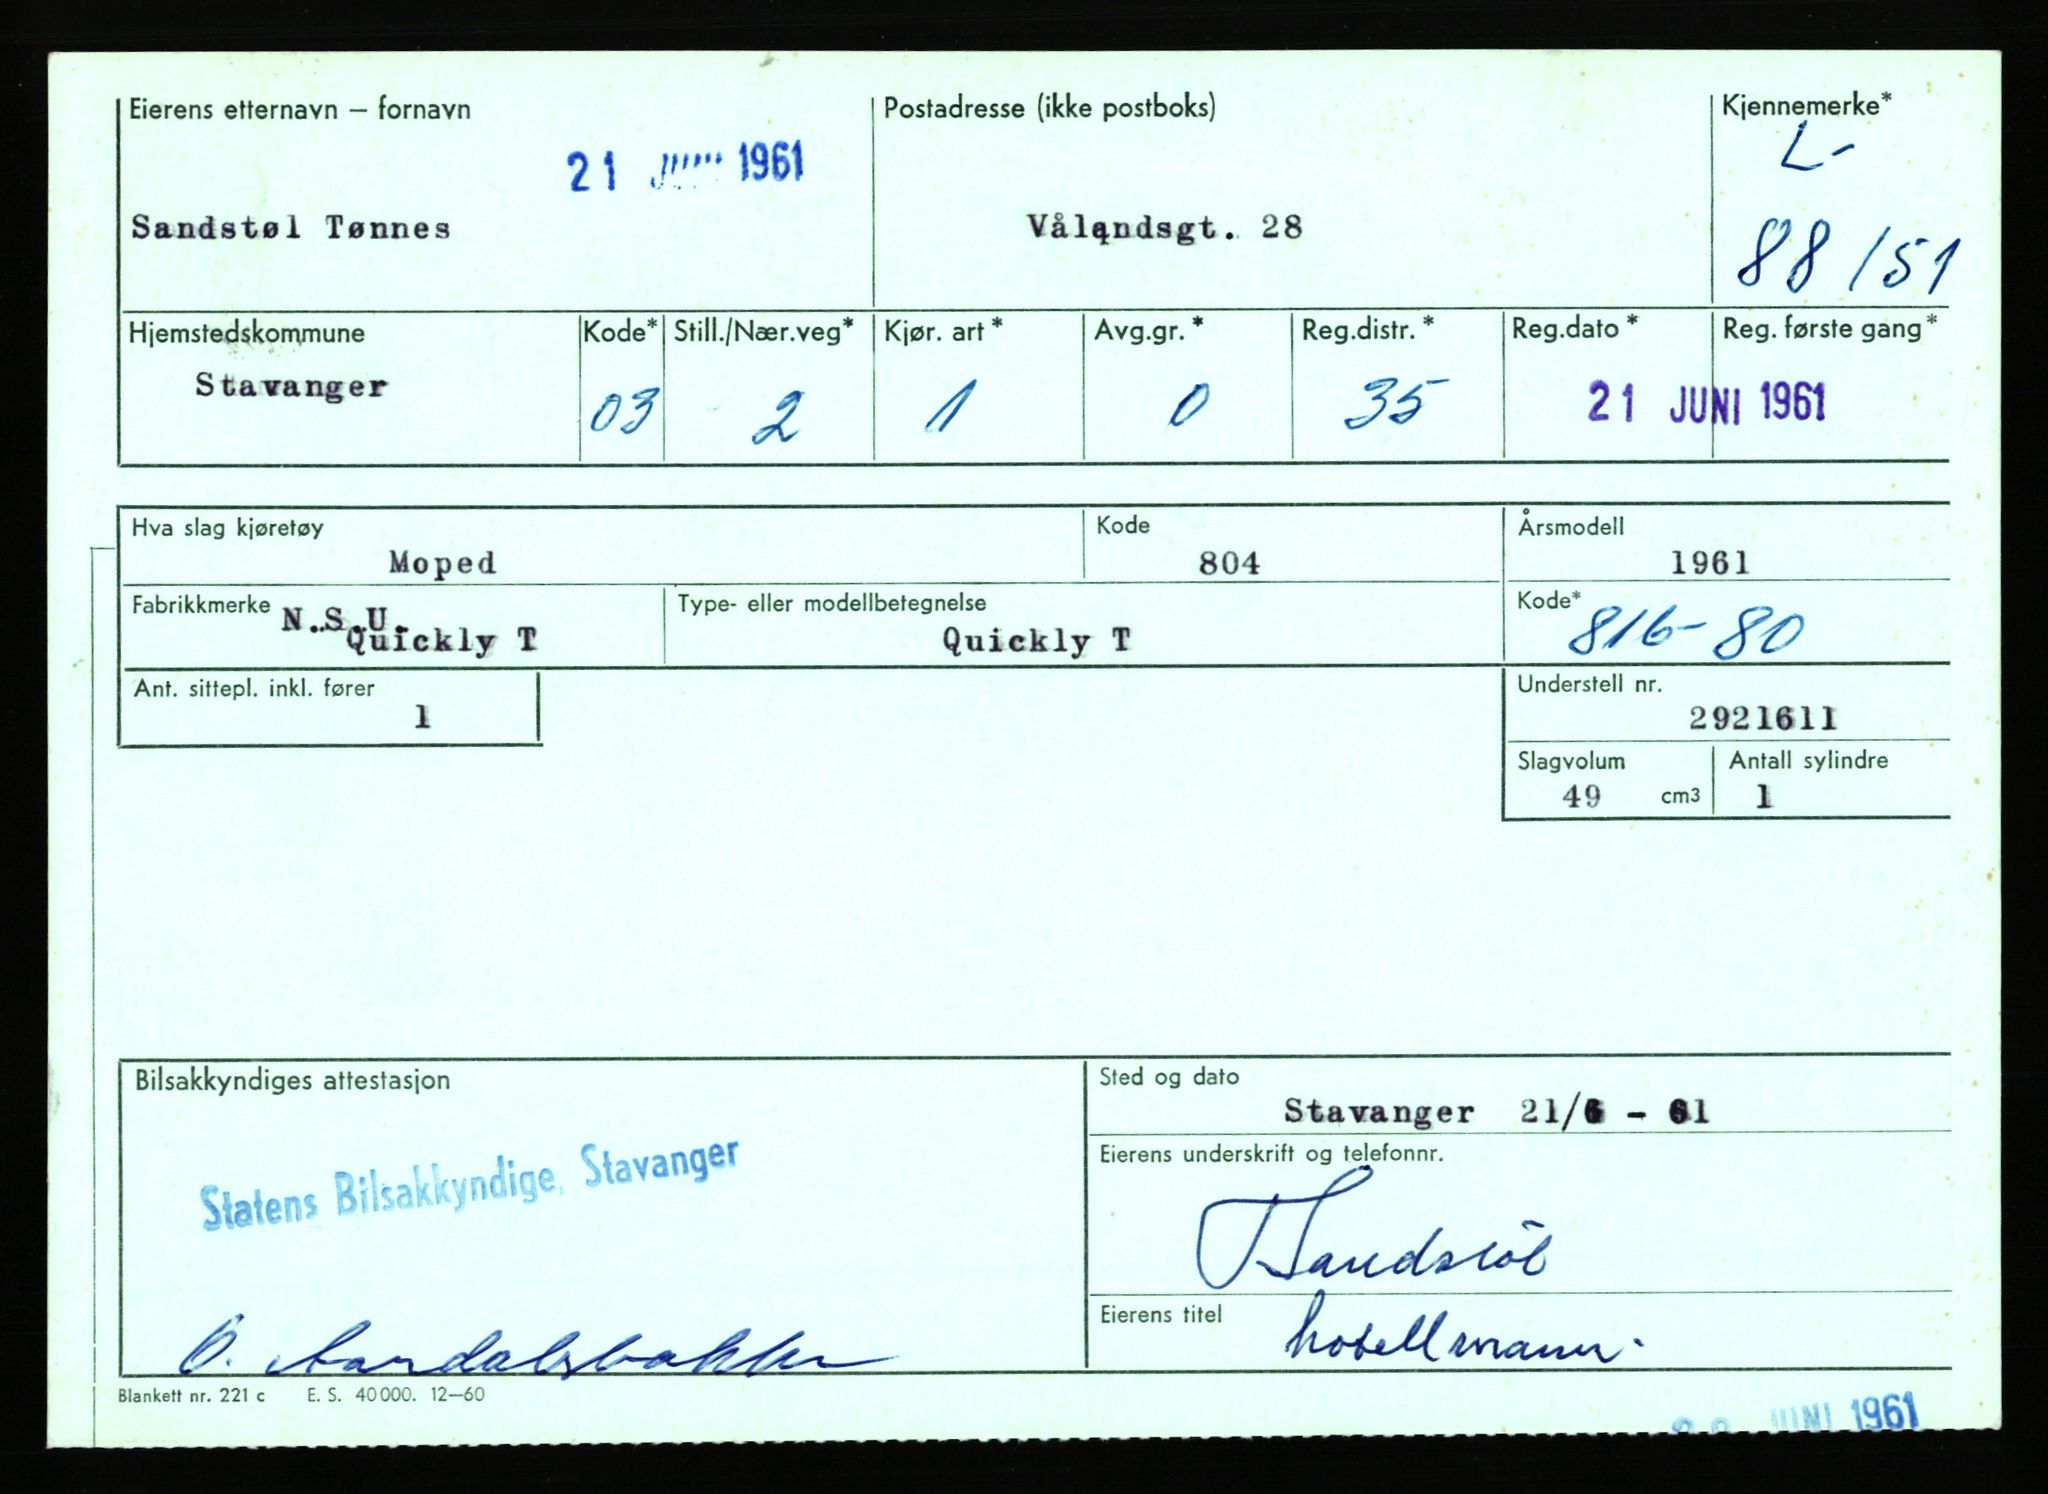 Eierens etternavn – fornavn
Postadresse (ikke postboks)
Kjennemerke*
21 JUNI 1961
L-
Sandstøl Tønnes
Vålandsgt. 28
88151
Hjemstedskommune
Kode*
Still./Nær.veg*
Kjør. art*
Avg.gr.*
Reg.distr.*
Reg.dato*
Reg. første gang*
Stavanger
03
2
1
0
35
21 JUNI 1961
Hva slag kjøretøy
Kode
Årsmodell
Moped
804
1961
Fabrikkmerke
Type- eller modellbetegnelse
Kode*
N.S.U.
Quickly T
Quickly T
816-80
Ant. sittepl. inkl. fører
1
Understell nr.
2921611
Slagvolum
Antall sylindre
49 cm3
1
Bilsakkyndiges attestasjon
Sted og dato
Stavanger 21/6 - 61
Statens Bilsakkyndige, Stavanger
Eierens underskrift og telefonnr.
T Sandstöl
Eierens titel
hotellmann.
O. Aardalsbakke
Blankett nr. 221 c E. S. 40 000. 12–60
JUNI 1961